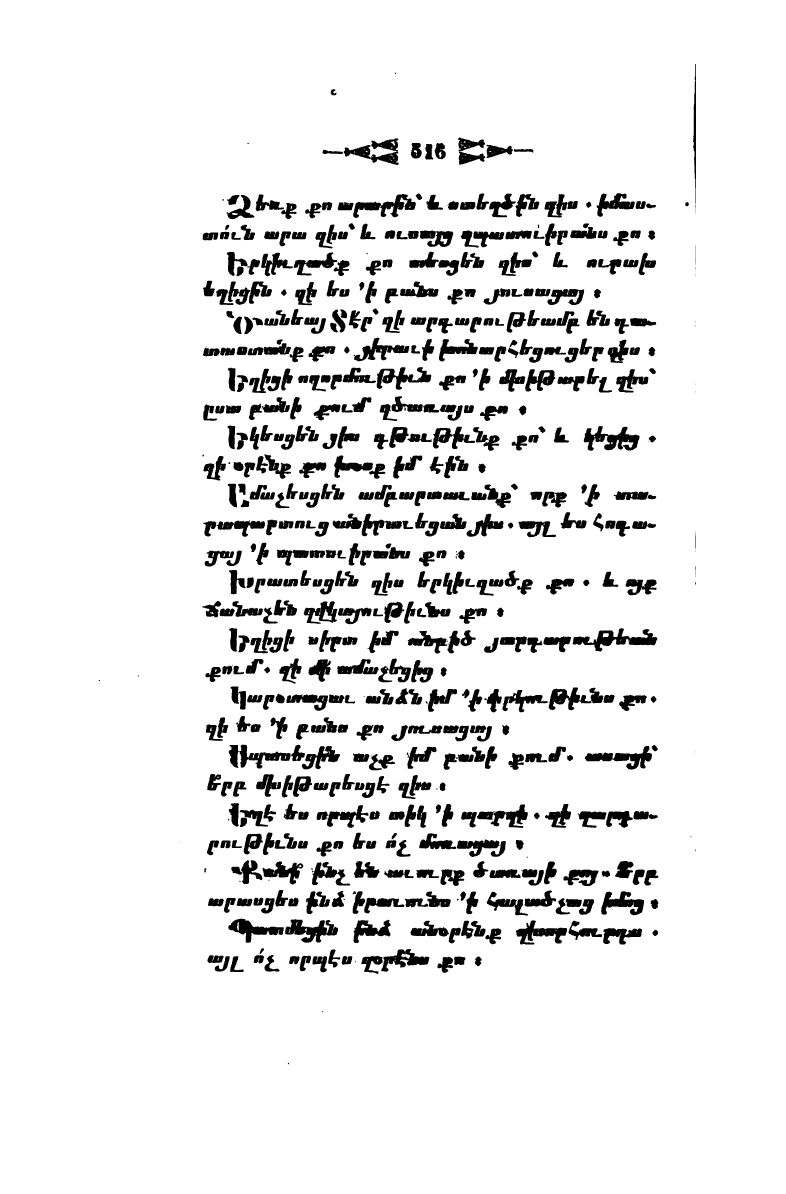 516
Ձեռք քո արարին՝ և ստեղծին զիս . իմաս-
տո՛ւն արա զիս՝ և ուսայց զպատուիրանս քո ։
Երկիւղածք քո տեսցեն զիս՝ և ուրախ
եղիցին . զի ես ՚ի բանս քո յուսացայ ։
Ծանեայ Տէր՝ զի արդարութեամբ են դա-
տաստանք քո . յիրաւի խոնարհեցուցեր զիս ։
Եղիցի ողորմութիւն քո ՚ի մխիթարել զիս՝
ըստ բանի քում զծառայս քո ։
Եկեսցեն յիս գթութիւնք քո՝ և կեցից .
զի օրէնք քո խօսք իմ էին ։
Ամաչեսցեն ամբարտաւանք՝ որք ՚ի տա-
րապարտուց անիրաւեցան յիս . այլ ես հոգա-
ցայ ՚ի պատուիրանս քո ։
Խրատեսցեն զիս երկիւղածք քո . և ոյք
ճանաչեն զվկայութիւնս քո ։
Եղիցի սիրտ իմ անբիծ յարդարութեան
քում . զի մի ամաչեցից ։
Կարօտացաւ անձն իմ ՚ի փրկութիւնս քո .
զի ես ՚ի բանս քո յուսացայ ։
Սպասեցին աչք իմ բանի քում . ասացի՝
Երբ մխիթարեսցէ զիս ։
Եղէ ես որպէս տիկ ՚ի պարզի . զի զարդա-
րութիւնս քո ես ո՛չ մոռացայ ։
Քանի՞ ինչ են աւուրք ծառայի քոյ . Երբ
արասցես ինձ իրաւունս ՚ի հալածչաց իմոց ։
Պատմեցին ինձ անօրէնք զխորհուրդս .
այլ ո՛չ որպէս զօրէնս քո ։